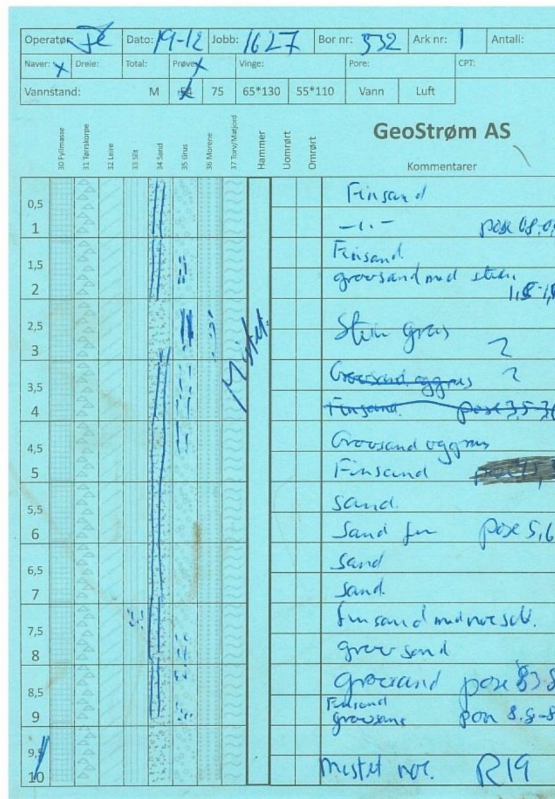 Operatør: Dato: 19-12 Jobb: 1627 Bor nr: 332 Ark nr: 1 Antall:
Naver: x Dreie: Total: Prøve: x Vinge: Pore: CPT:
Vannstand: M 54 75 65*130 55*110 Vann Luft
30 Fyllmasse
31 Tørrskorpe
32 Leire
33 Silt
34 Sand
35 Grus
36 Morene
37 Torv/Matjord
Hammer
Uomrørt
Omrørt
GeoStrøm AS
Kommentarer
Finsand
0,5
1 -"- pose 0,8-0,
1,5 Finsand
grovsand med stein
2 1,8-1,
2,5 Stein grus
3 ?
Mistet
3,5 Grovsand og grus ?
4 Finsand. pose 3,5-3,
4,5 Grovsand og grus
5 Finsand
5,5 sand.
6 Sand fin pose 5,6
6,5 sand
7 sand.
7,5 finsand med noe silt.
8 grov sand
8,5 Grovsand pose 8,3-8
Finsand
9 grovsand 8.8-8
9,5
10 mistet noe. R19